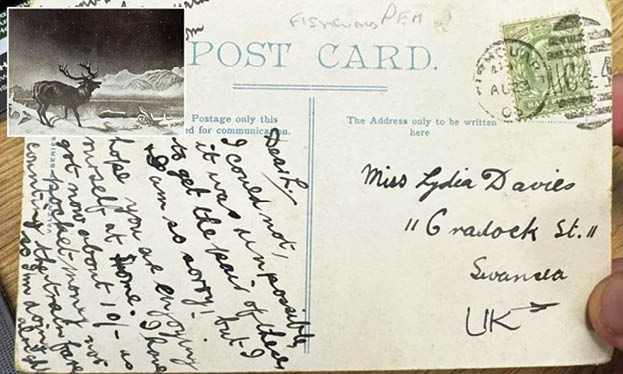 FISHGUARD PEM
POST CARD.
Postage only this
ed for communication.
The Address only to be written
here
AU 23
SERIES
Dear L/
I could not,
it was impossible
to get the pair of these
I am so sorry! but I
hope you are enjoying
yourself at home. I have
got now about 10/- as
pocket money not
counting the train fare
so I'm doing
alright
Miss Lydia Davies
"11 Cradock St."
Swansea
UK